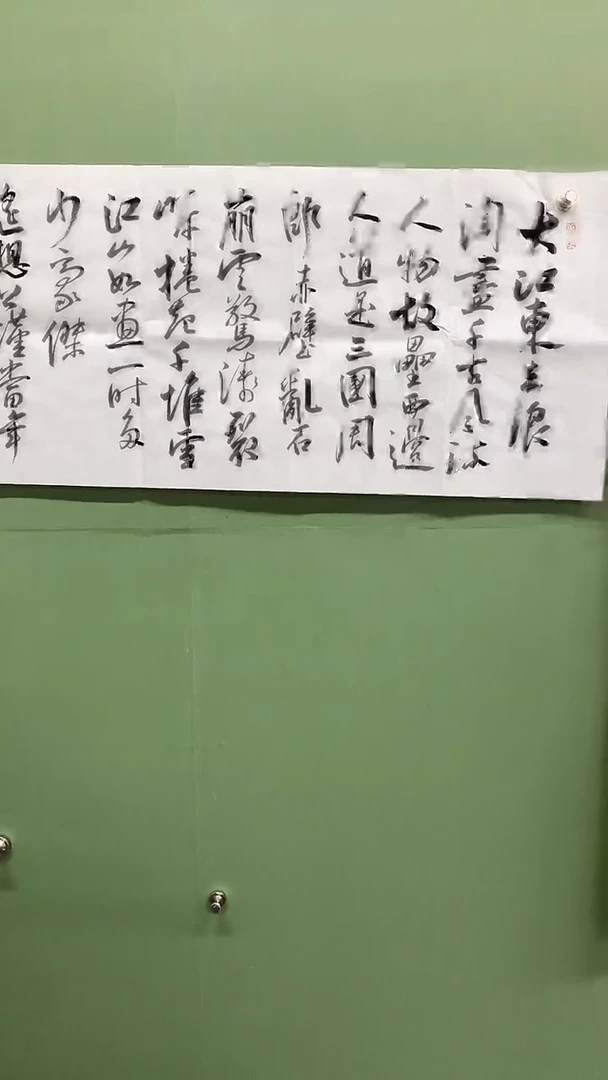 大江東去浪
淘盡千古風流
人物故壘西邊
人道是三國周
郎赤壁亂石
崩雲驚濤裂
岸捲起千堆雪
江山如畫一時多
少豪傑
遙想公瑾當年